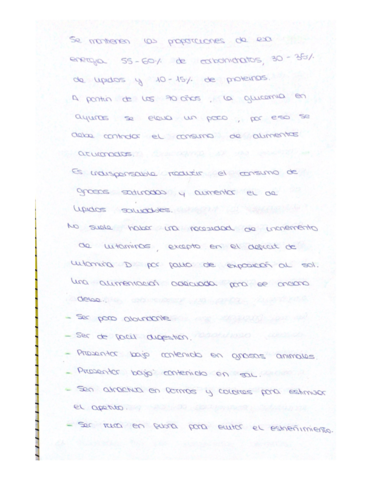 Se mantienen las proporciones de esa
energía 55-60% de carbohidratos, 30-35%
de lípidos y 10-15% de proteínas.
A partir de los 70 años, la glucemia en
ayunas se eleva un poco, por eso se
debe controlar el consumo de alimentos
azucarados.
Es indispensable reducir el consumo de
grasas saturadas y aumentar el de
lípidos saludables.
No suele haber una necesidad de incremento
de vitaminas, excepto en el déficit de
vitamina D por falta de exposición al sol.
Una alimentación adecuada para el anciano
debe:
- Ser poco abundante.
- Ser de fácil digestión.
- Presentar bajo contenido en grasas animales
- Presentar bajo contenido en sal.
- Ser atractiva en formas y colores para estimular
el apetito.
- Ser rica en fibra para evitar el estreñimiento.